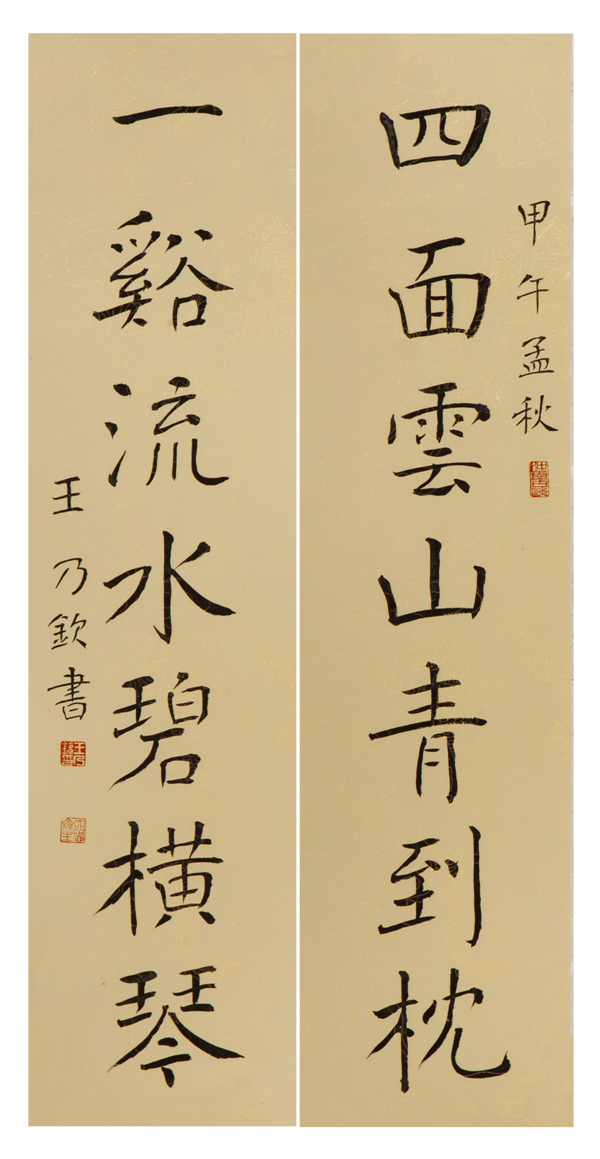 甲午孟秋
四面雲山青到枕
一谿流水碧橫琴
王乃欽書